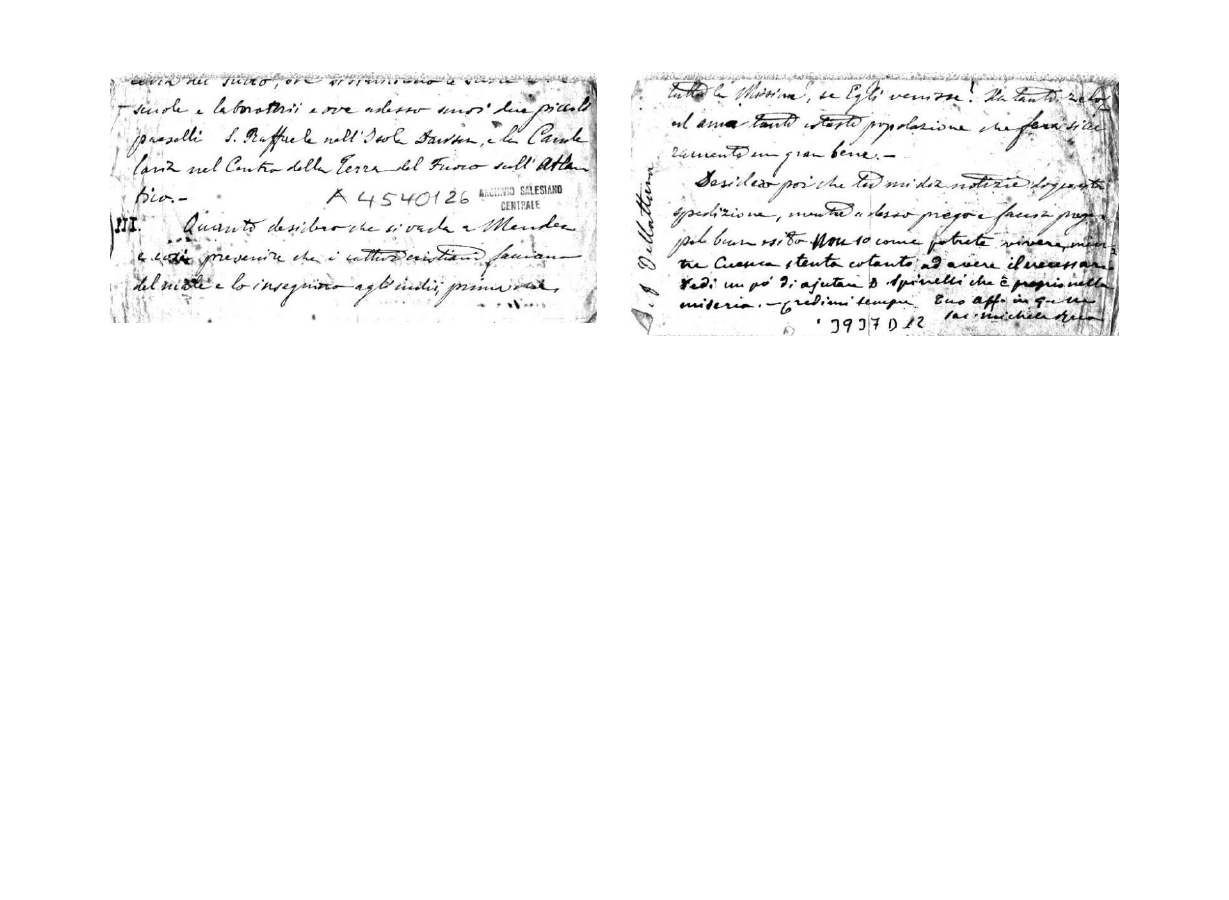 scuole e laboratorii e ove adesso sonvi due piccoli
paeselli S. Raffaele nell'Isola Dawson, e la Cande
laria nel Centro della Terra del Fuoco sull'Atlan
tico.-
A 4540126
ARCHIVIO SALESIANO
CENTRALE
III. Quanto desidero che si vada a Mendez
e così prevenire che i cattivi cristiani facciano
del male e lo insegnino agli indii, prima
tutta la Missione, se Egli venisse! Ha tanto zelo
ed ama tanto cotesta popolazione che farà sicu
ramente un gran bene.-
Desidero poi che tu mi dia notizie di questa
spedizione, mentre adesso prego e faccio preg
pel buon esito. Non so come potrete vivere, men
tre Cuenca stenta cotanto ad avere il necessar
Vedi un pò di ajutare D Spinelli che è proprio nella
miseria. - Credimi sempre Tuo aff. in G. e M.
Sac. Michele Rua
3937 D 12